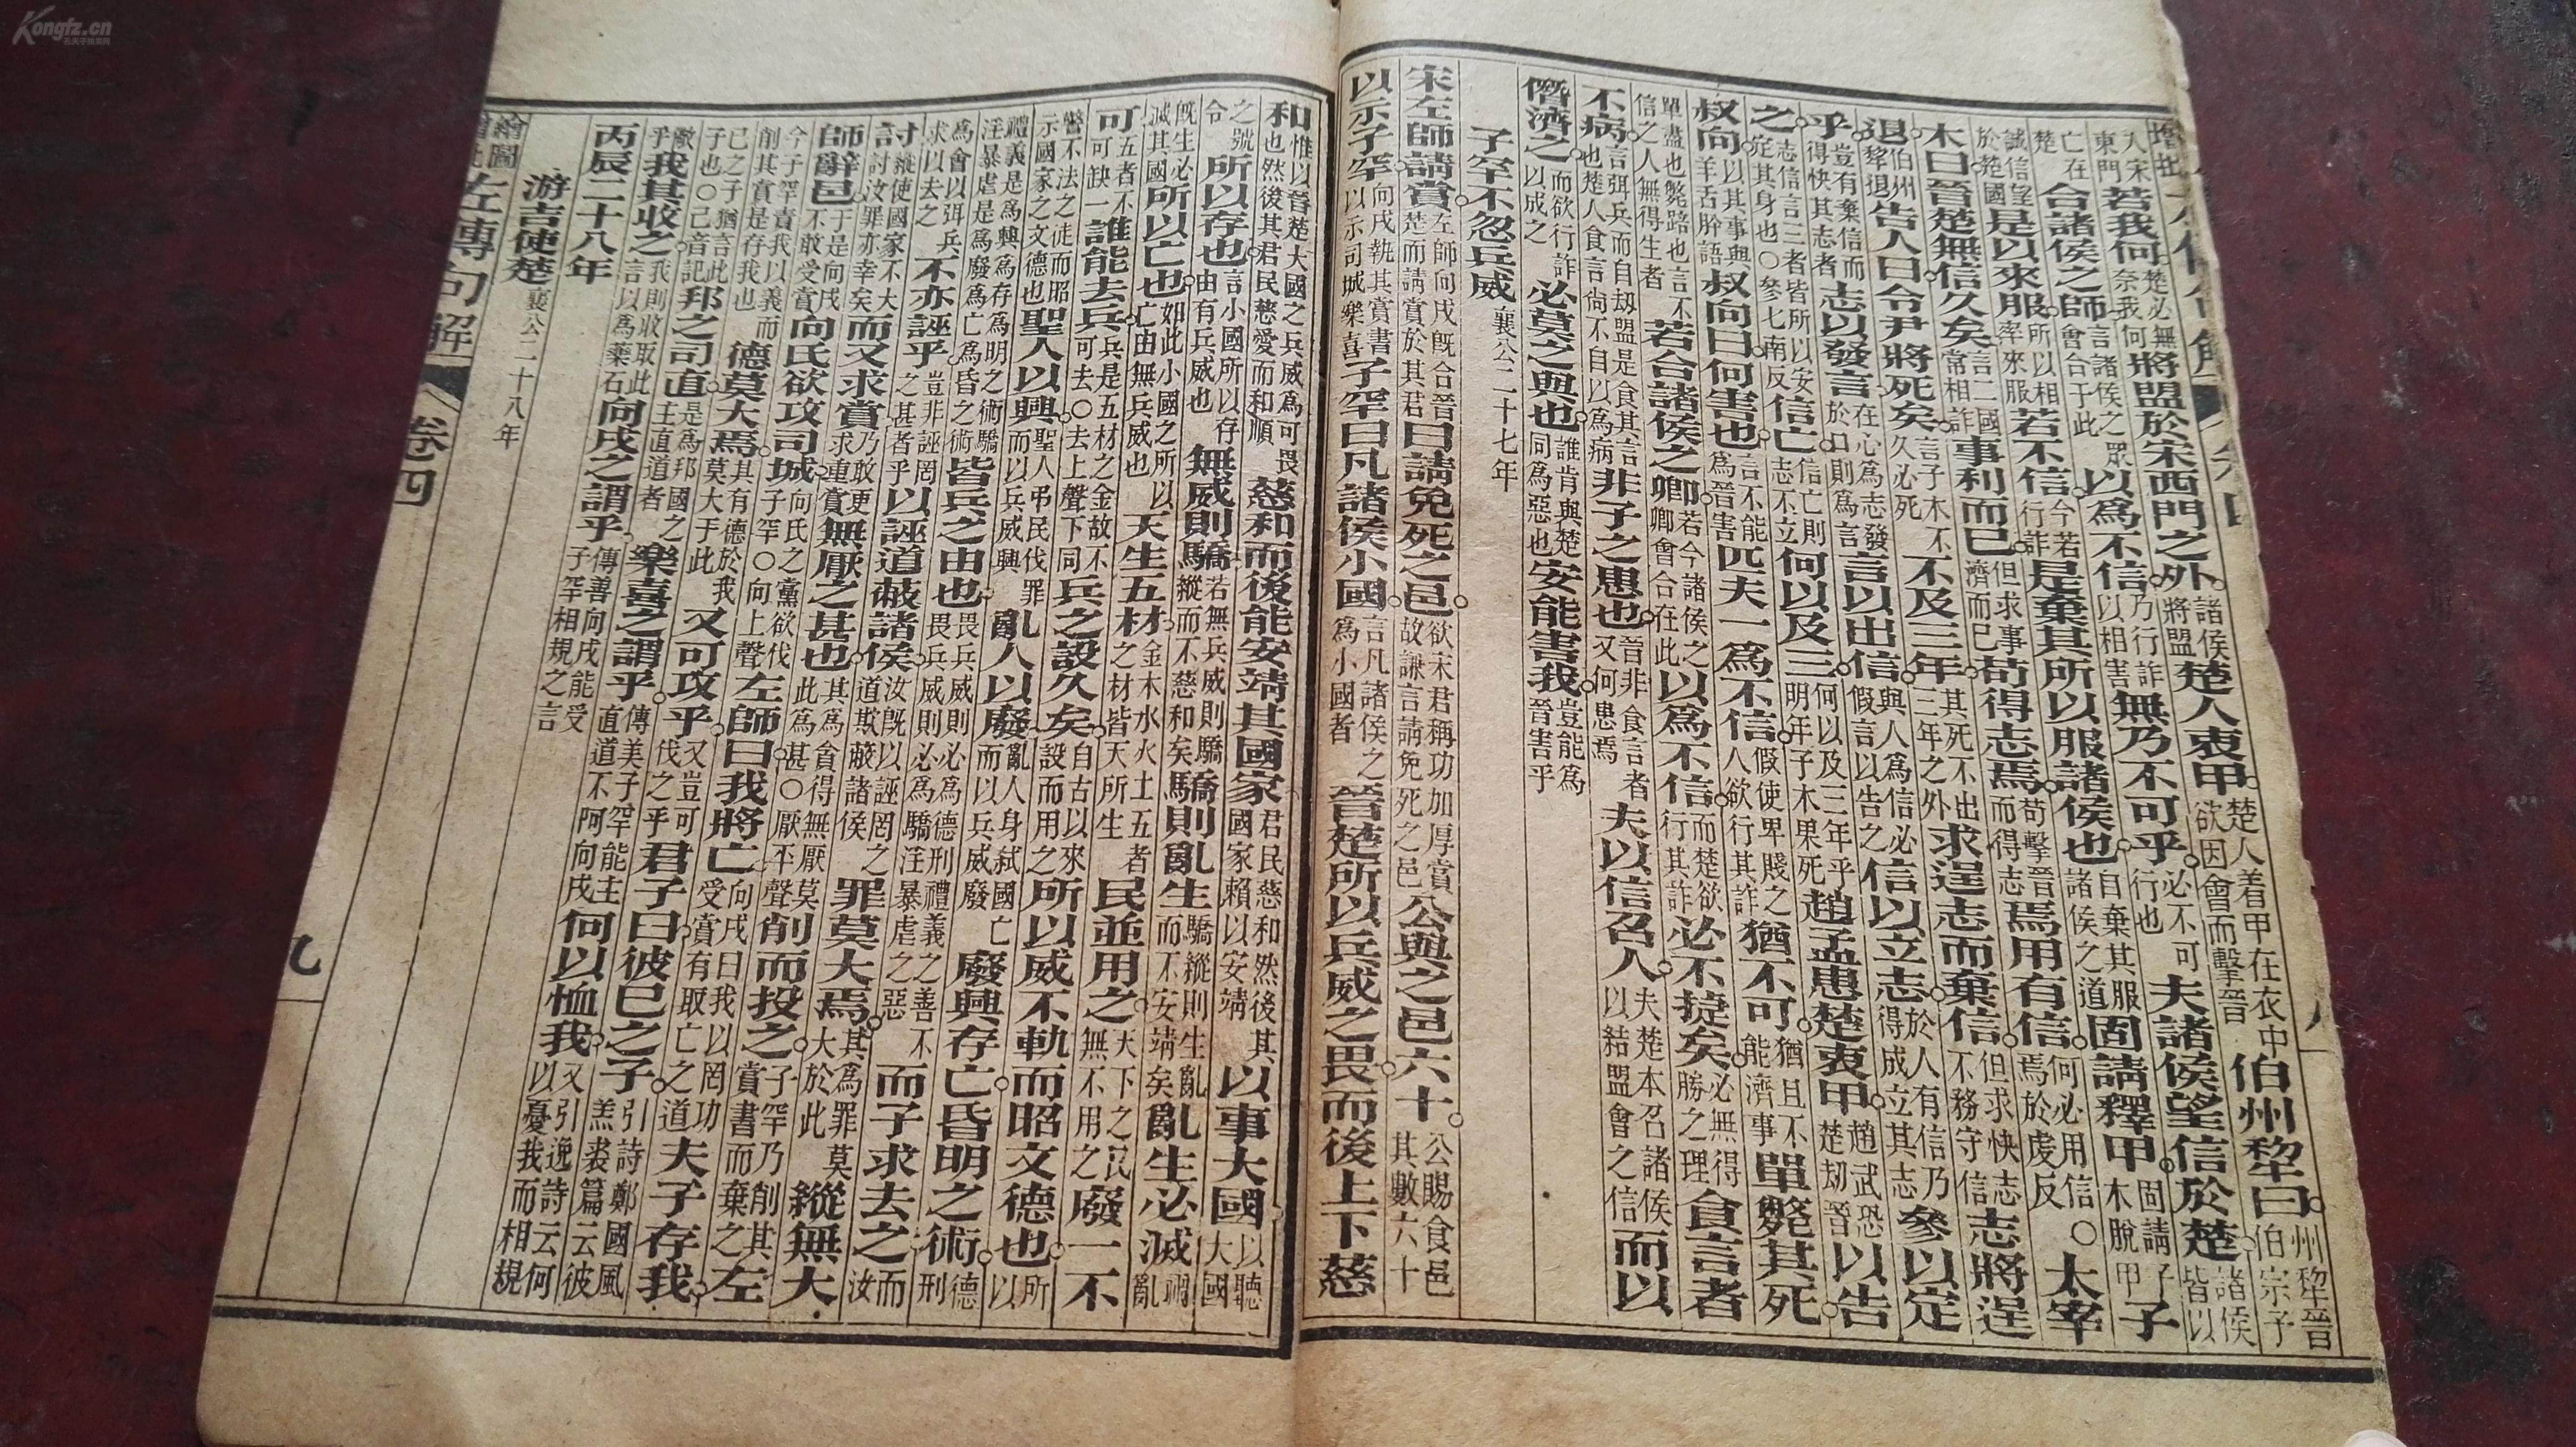 入宋東門若我何楚必無奈我何將盟於宋西門之外諸侯將盟楚人衷甲楚人着甲在衣中欲因會而擊晉伯州犂曰州犂晉伯宗子
亡在楚合諸侯之師言諸侯之眾會合于此以為不信乃行詐以相害無乃不可乎必不可行也夫諸侯望信於楚諸侯皆以
誠信望於楚國是以來服所以相率來服若不信今若行詐是棄其所以服諸侯也自棄其服諸侯之道固請釋甲固請子木脫甲子
木曰晉楚無信久矣言二國常相詐事利而已但求事濟而已苟得志焉苟擊晉而得志焉用有信何必用信○焉於虔反太宰
退伯州犂退告人曰令尹將死矣言子木不久必死不及三年其死不出三年之外求逞志而棄信但求快志不務守信志將逞
乎豈有棄信而得快其志者志以發言在心為志發於口則為言言以出信與人為信必假言以告之信以立志於人有信乃得成立其志參以定
之志信言三者皆所以安定其身也○參七南反信亡信亡則志不立何以及三何以及三年乎明年子木果死趙孟患楚衷甲趙武恐楚刼晉以告
叔向以其事與叔向羊舌肸語叔向曰何害也言不能為晉害匹夫一為不信假使卑賤之人欲行其詐猶不可猶且不能濟事單斃其死
單盡也斃踣也言不信之人無得生者若合諸侯之卿若今諸侯之卿會合在此以為不信而楚欲行其詐必不捷矣必無得勝之理食言者
不病言弭兵而自刼盟是食其言也楚人食言尚不自以為病非子之患也晉非食言者又何患焉夫以信召人夫楚本召諸侯以結盟會之信而以
僭濟之而欲行詐以成之必莫之與也誰肯與楚同為惡也安能害我豈能為晉害乎
子罕不忽兵威襄公二十七年
宋左師請賞左師向戌既合晉楚而請賞於其君曰請免死之邑欲宋君稱功加厚賞故謙言請免死之邑公與之邑六十公賜食邑其數六十
以示子罕向戌執其賞書以示司城樂喜子罕曰凡諸侯小國言凡諸侯之為小國者晉楚所以兵威之畏而後上下慈
和惟以晉楚大國之兵威為可畏也然後其君民慈愛而和順慈和而後能安靖其國家君民慈和然後其國家賴以安靖以事大國以聽大國
之號令所以存也言小國所以存由有兵威也無威則驕若無兵威則驕縱而不慈和矣驕則亂生驕縱則生亂而不安靖矣亂生必滅禍亂
既生必滅其國所以亡也如此小國之所以亡由無兵威也天生五材金木水火土五者之材皆天所生民並用之天下之民無不用之廢一不
可五者不可缺一誰能去兵兵是五材之金故不可去○去上聲下同兵之設久矣自古以來設而用之所以威不軌而昭文德也所以
警不法之徒而昭示國家之文德也聖人以興聖人弔民伐罪而以兵威興亂人以廢亂人身弒國亡而以兵威廢廢興存亡昏明之術德刑
禮義是為興為存為明之術驕淫暴虐是為廢為亡為昏之術皆兵之由也畏兵威則必為德刑禮義之善不畏兵威則必為驕淫暴虐之惡而子求去之而汝
為會以弭兵求以去之不亦誣乎豈非誣罔之甚者乎以誣道蔽諸侯汝既以誣罔之道欺蔽諸侯罪莫大焉其為罪莫大於此縱無大
討縱使國家不大討汝罪亦幸矣而又求賞乃敢更求重賞無厭之甚也其為貪得無厭莫此為甚○厭平聲削而投之子罕乃削其賞書而棄之左
師辭邑于是向戌不敢受賞向氏欲攻司城向氏之黨欲伐子罕○向上聲左師曰我將亡向戌曰我以罔功受賞有取亡之道夫子存我
今子罕責我以義而削其賞是存我也德莫大焉其有德於我莫大于此又可攻乎又豈可伐之乎君子曰彼已之子引詩鄭國風羔裘篇云彼
已之子猶言此子也○已音記邦之司直是為邦國之主直道者樂喜之謂乎傳美子罕能主直道不阿向戌何以恤我又引逸詩云何以憂我而相規
敵乎我其收之我則收取此言以為藥石向戌之謂乎傳善向戌能受子罕相規之言
丙辰二十八年
游吉使楚襄公二十八年
繪圖 左傳句解 卷四 九
Kongfz.cn